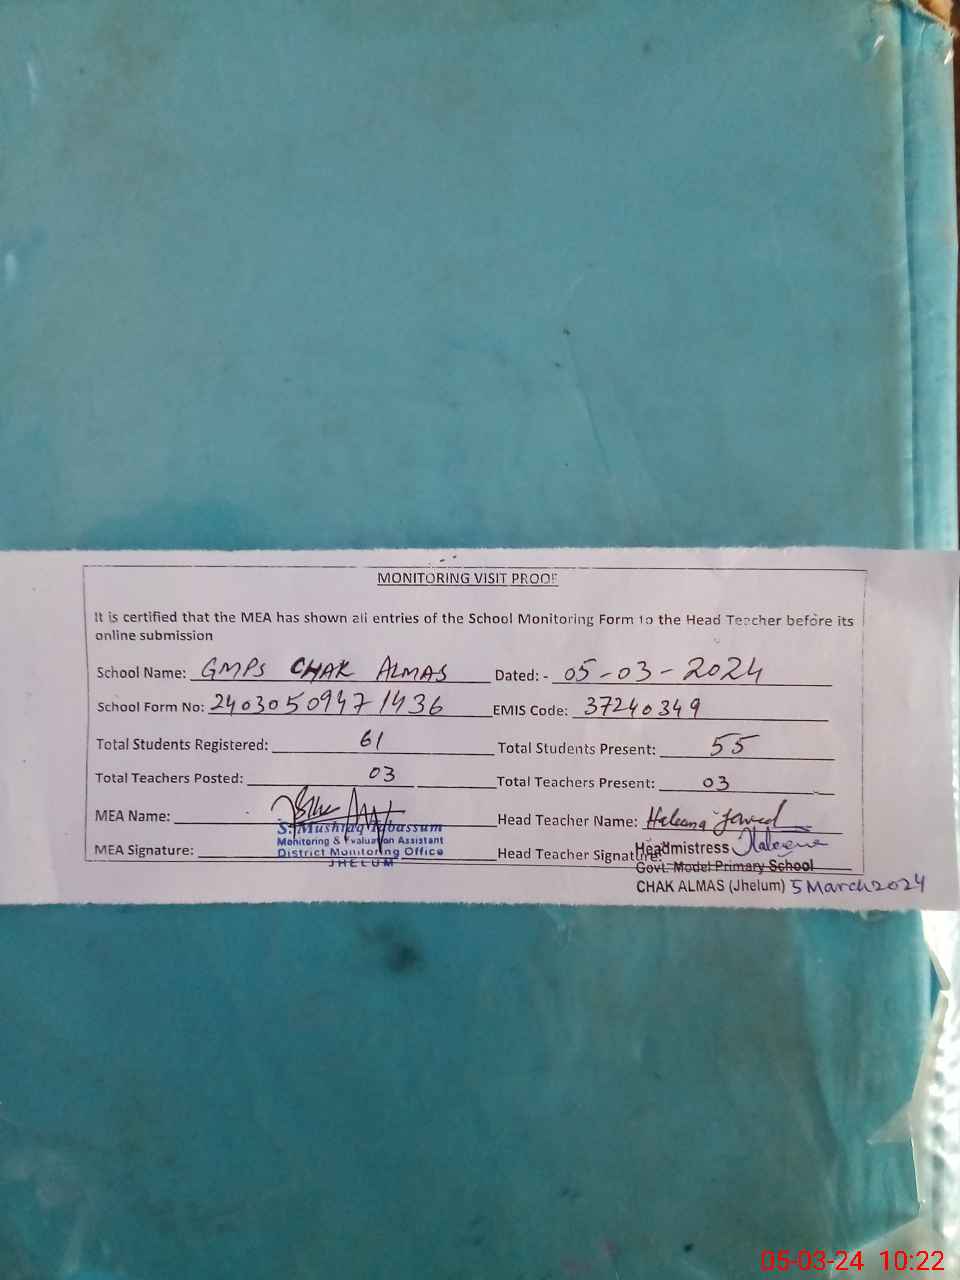 MONITORING VISIT PROOF
It is certified that the MEA has shown all entries of the School Monitoring Form to the Head Teacher before its
online submission
School Name: GMPS CHAK ALMAS Dated: - 05-03-2024
School Form No: 24030509471436 EMIS Code: 37240349
Total Students Registered: 61 Total Students Present: 55
Total Teachers Posted: 03 Total Teachers Present: 03
MEA Name: Head Teacher Name: Haleema Javed
S. Mushtaq Tabassum
Monitoring & Evaluation Assistant
District Monitoring Office
JHELUM
MEA Signature: Head Teacher Signature:
Headmistress Haleema
Govt. Model Primary School
CHAK ALMAS (Jhelum) 5 March 2024
05-03-24 10:22